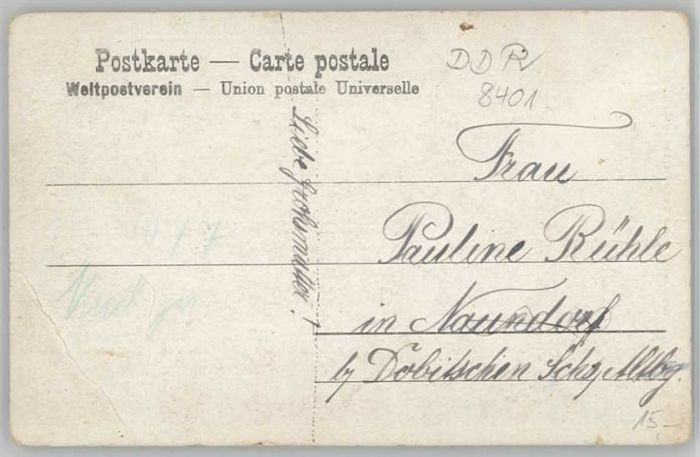 Postkarte — Carte postale
Weltpostverein — Union postale Universelle
DDR
8401
Liebe Großmutter!
Frau
Pauline Rühle
in Naundorf
b/ Dobitschen Altbg.
15.-